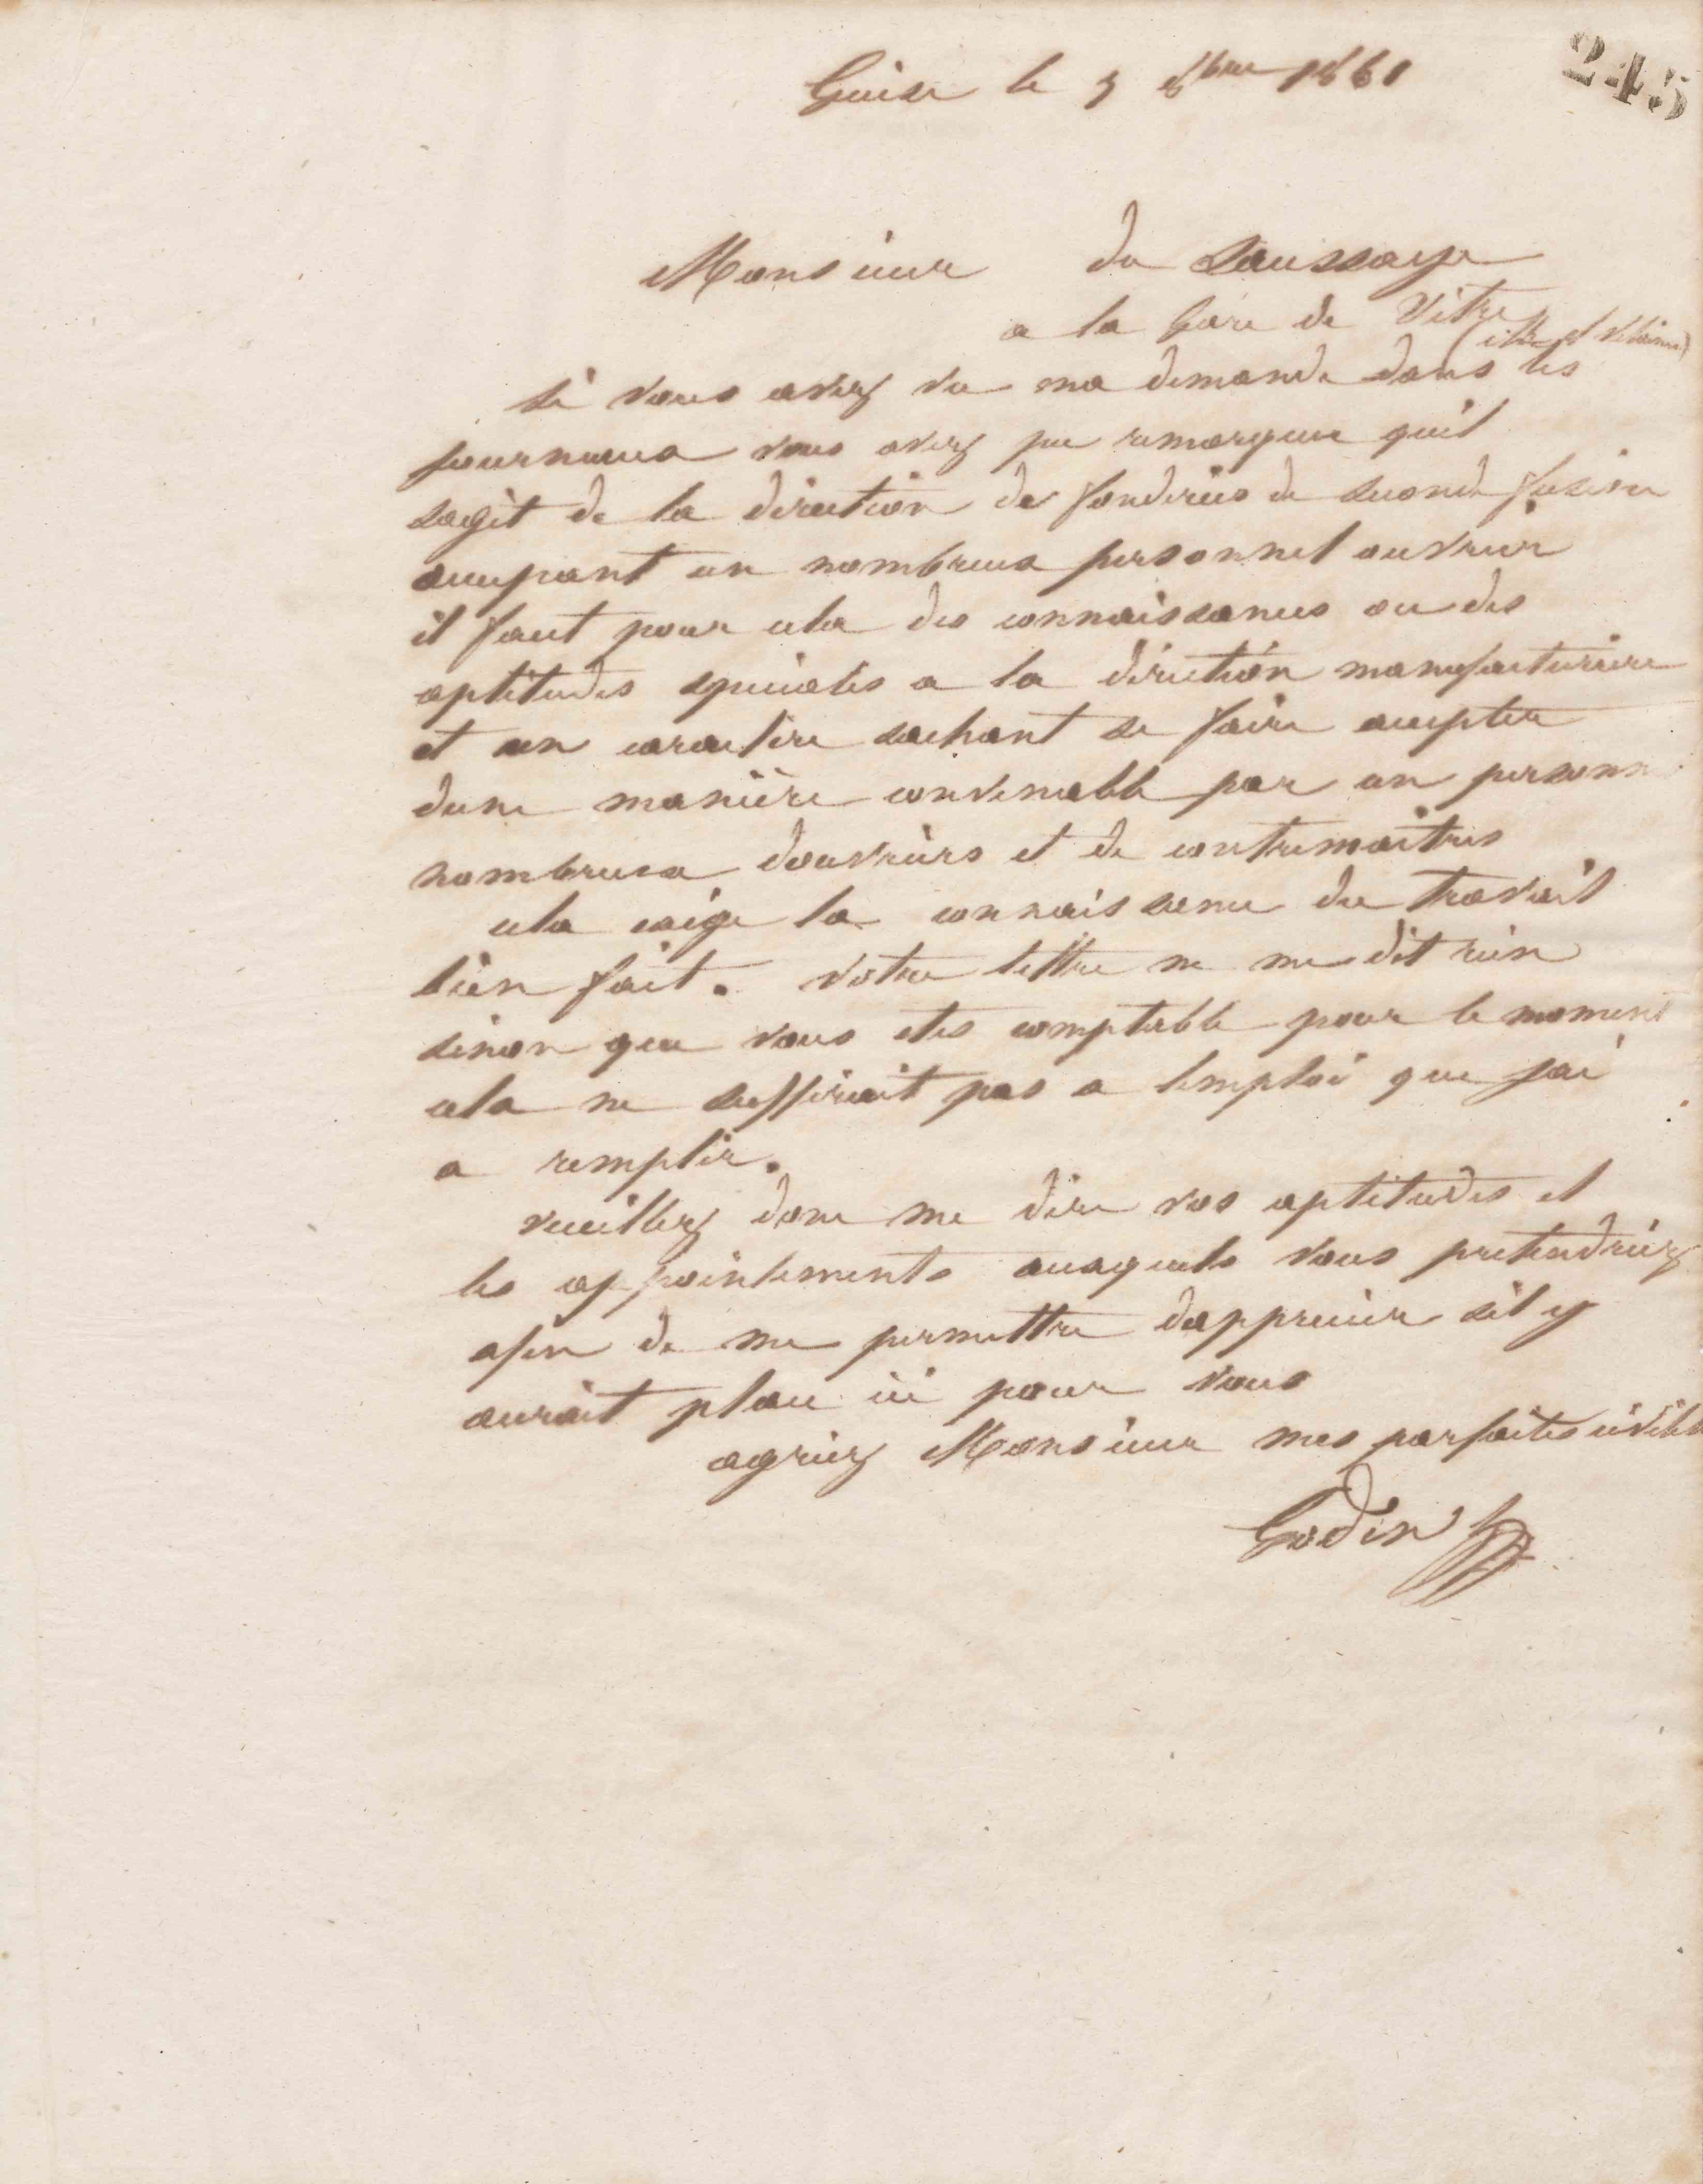 245
Guise le 3 8bre 1861
Monsieur du Saussaye
a la Gare de Vitre
(ille et Vilaine)
si vous avez vu ma demande dans les
journeaux vous avez pu remarquer quil
sagit de la direction de fonderies de seconde fusion
occupant un nombreux personnel ouvrier
il faut pour cela des connaissances ou des
aptitudes speciales a la direction manufacturiere
et un caractere sachant se faire accepter
dune manière convenable par un personn
nombreux douvriers et de contremaitres
cela exige la connaissance du travail
bien fait. Votre lettre ne me dit rien
sinon que vous etes comptable pour le moment
cela ne suffirait pas a lemploi que jai
a remplir.
veuillez donc me dire vos aptitudes et
les appointements auxquels vous pretendriez
afin de me permettre dapprecier sil y
aurait place ici pour vous
agreez Monsieur mes parfaites civilit
Godin